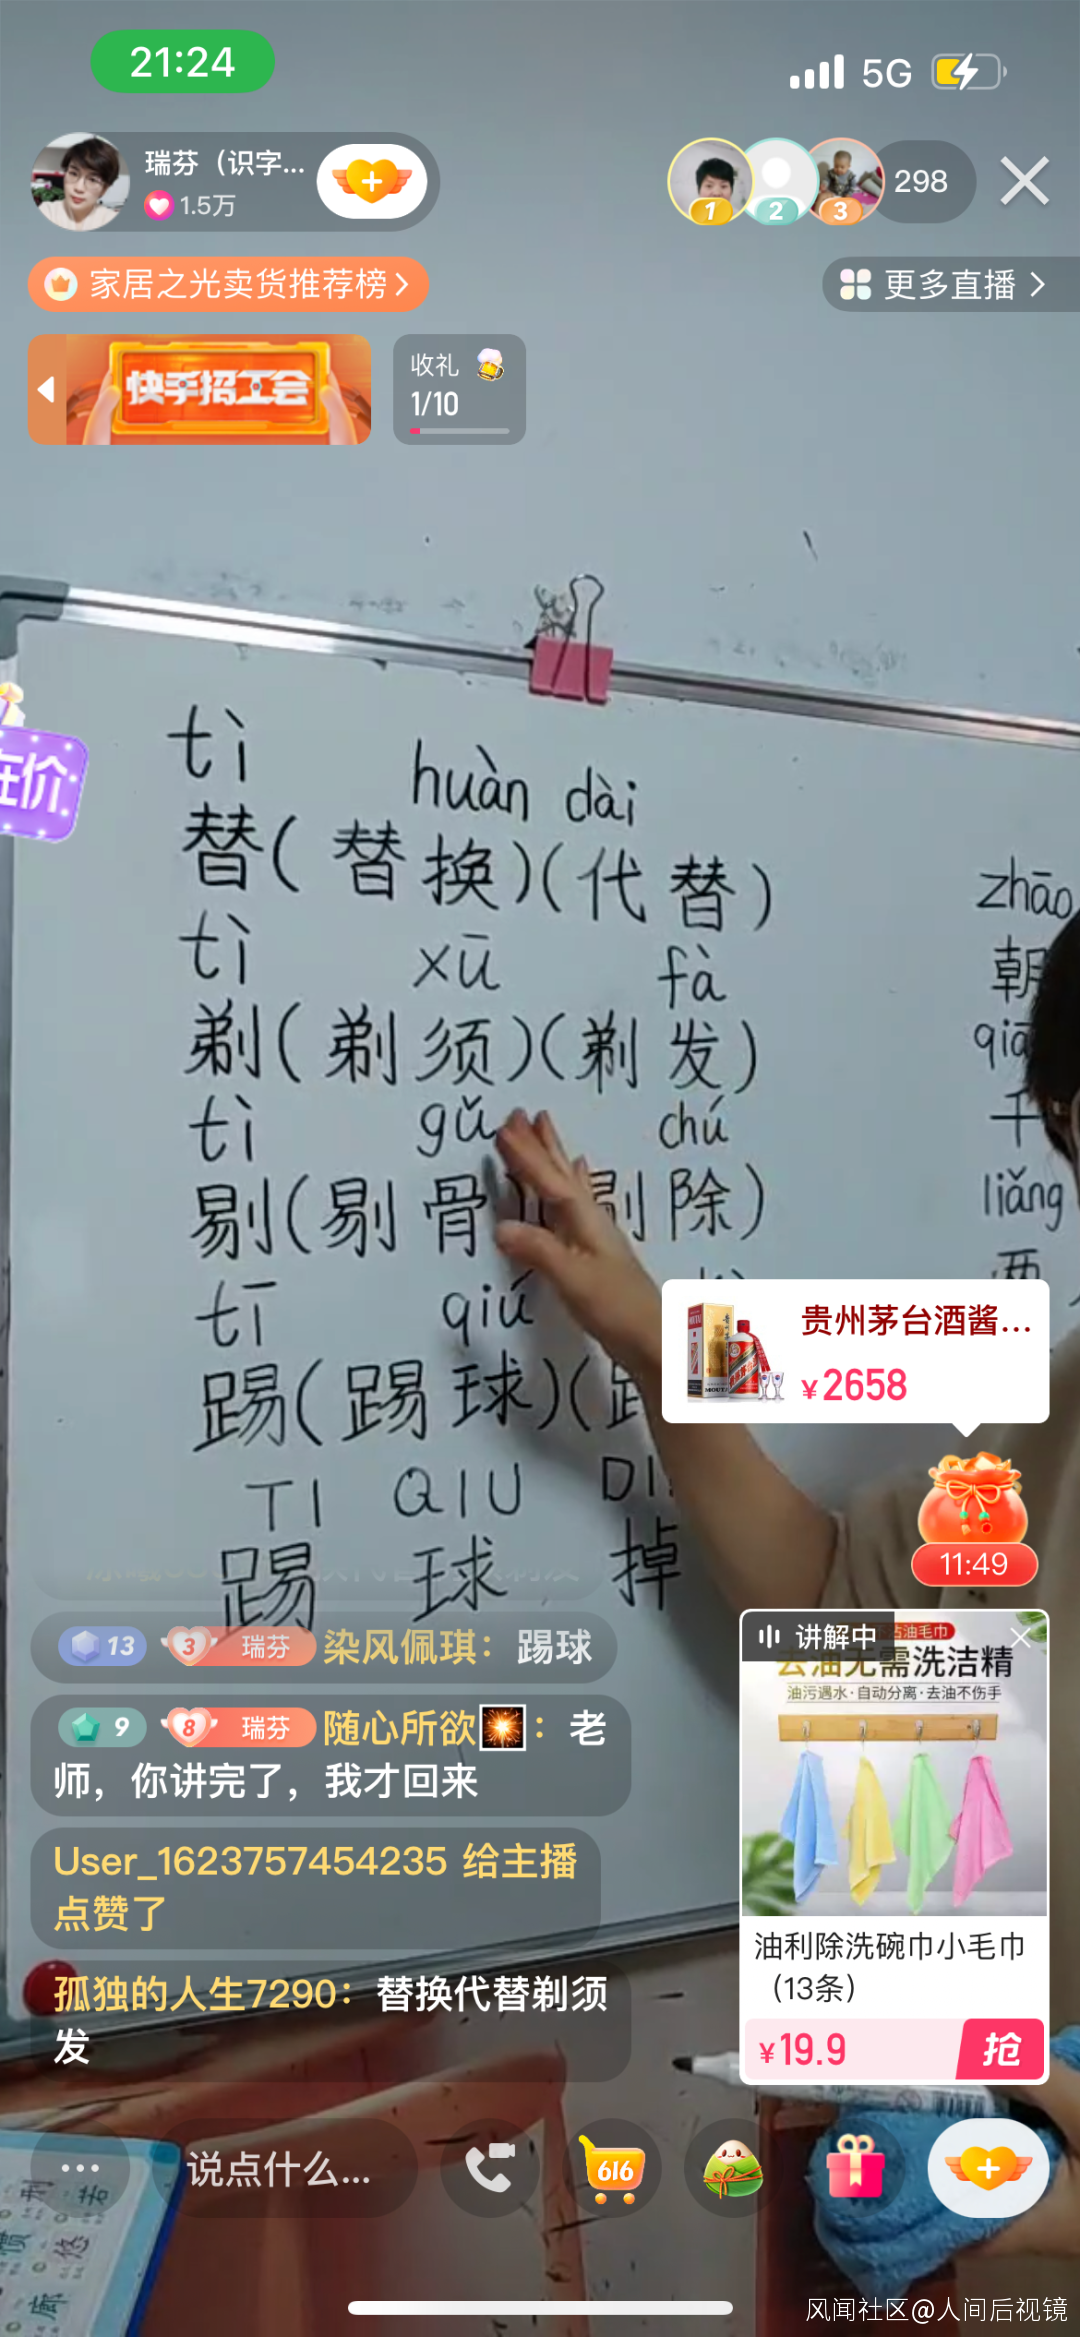 21:24
5G
瑞芬（识字...
1.5万
1
2
3
298
家居之光卖货推荐榜
更多直播
快手招工会
收礼
1/10
tì
huàn dài
替(替换)(代替)
tì xū fà
剃(剃须)(剃发)
tì gǔ chú
剔(剔骨)(剔除)
tī qiú
踢(踢球)(
TI QIU DI
踢 球 掉
zhāo
朝
千
liǎng
两
贵州茅台酒酱...
¥2658
11:49
13 3 瑞芬 染风佩琪： 踢球
9 8 瑞芬 随心所欲： 老
师，你讲完了，我才回来
User_1623757454235 给主播
点赞了
孤独的人生7290：替换代替剃须
发
讲解中
去油无需洗洁精
油污遇水·自动分离·去油不伤手
油利除洗碗巾小毛巾
（13条）
¥19.9
抢
说点什么...
616
风闻社区@人间后视镜